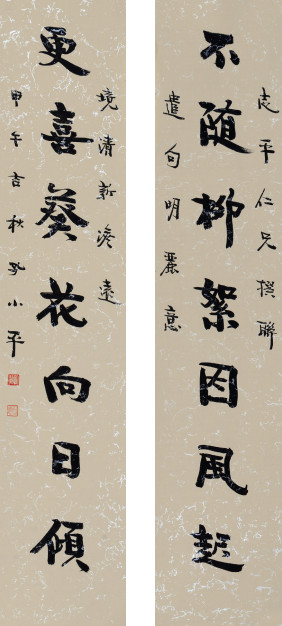 不随柳絮因风起
志平仁兄撰联
遣句明丽意
更喜葵花向日倾
境清新澹远
甲午吉秋孙小平